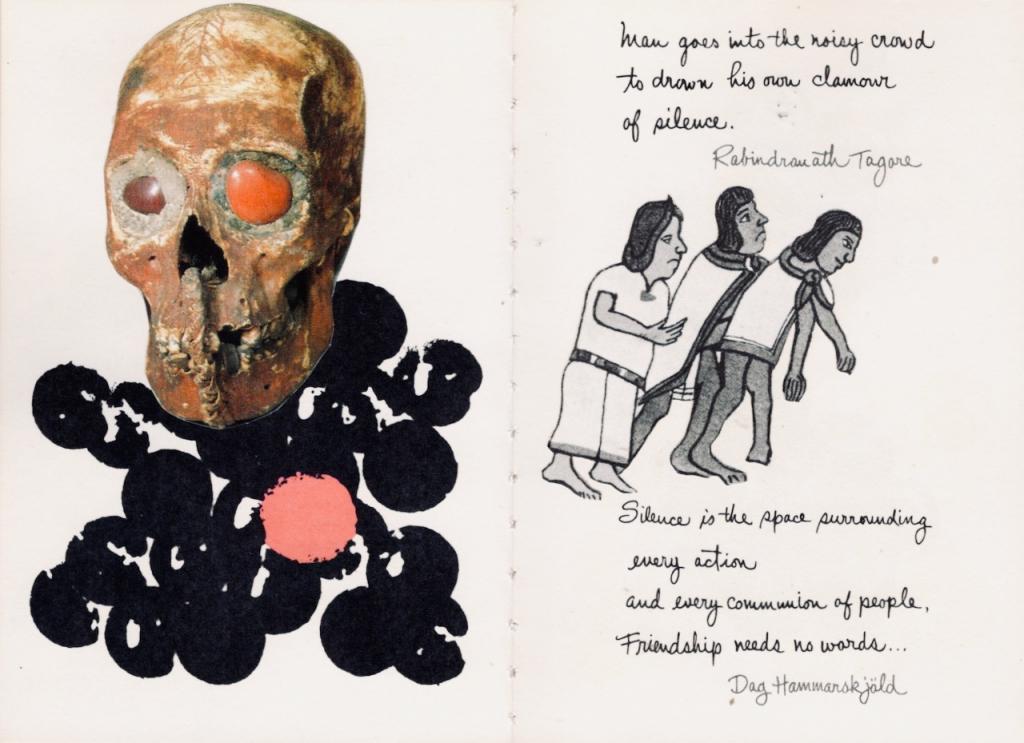 Man goes into the noisy crowd
to drown his own clamour
of silence.
Rabindranath Tagore
Silence is the space surrounding
every action
and every communion of people,
Friendship needs no words...
Dag Hammarskjöld